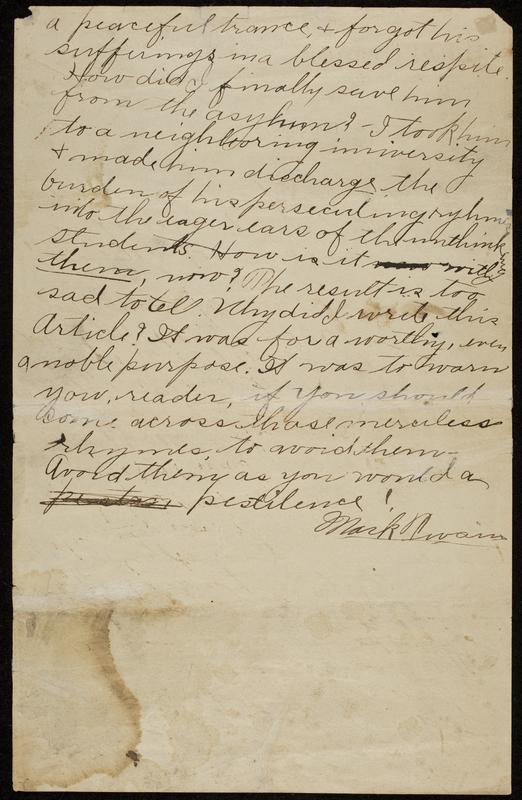 a peaceful trance, & forgot his
sufferings in a blessed respite.
How did I finally save him
from the asylum? I took him
to a neighboring university
& made him discharge the
burden of his persecuting rhymes
into the eager ears of the unthinking
students. How is it now with
them, now? The result is too
sad to tell. Why did I write this
Article? It was for a worthy, even
a noble purpose. It was to warn
you, reader, if you should
come across those merciless
rhymes, to avoid them—
Avoid them as you would a
pestilence!
Mark Twain